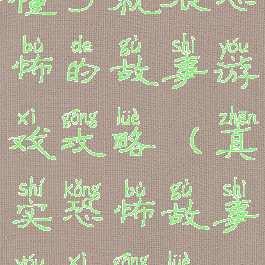 bù de gù shì yóu
怖的故事游
xì gōng lüè zhēn
戏攻略（真
shí kǒng bù gù shì
实恐怖故事
yóu xì gōng lüè